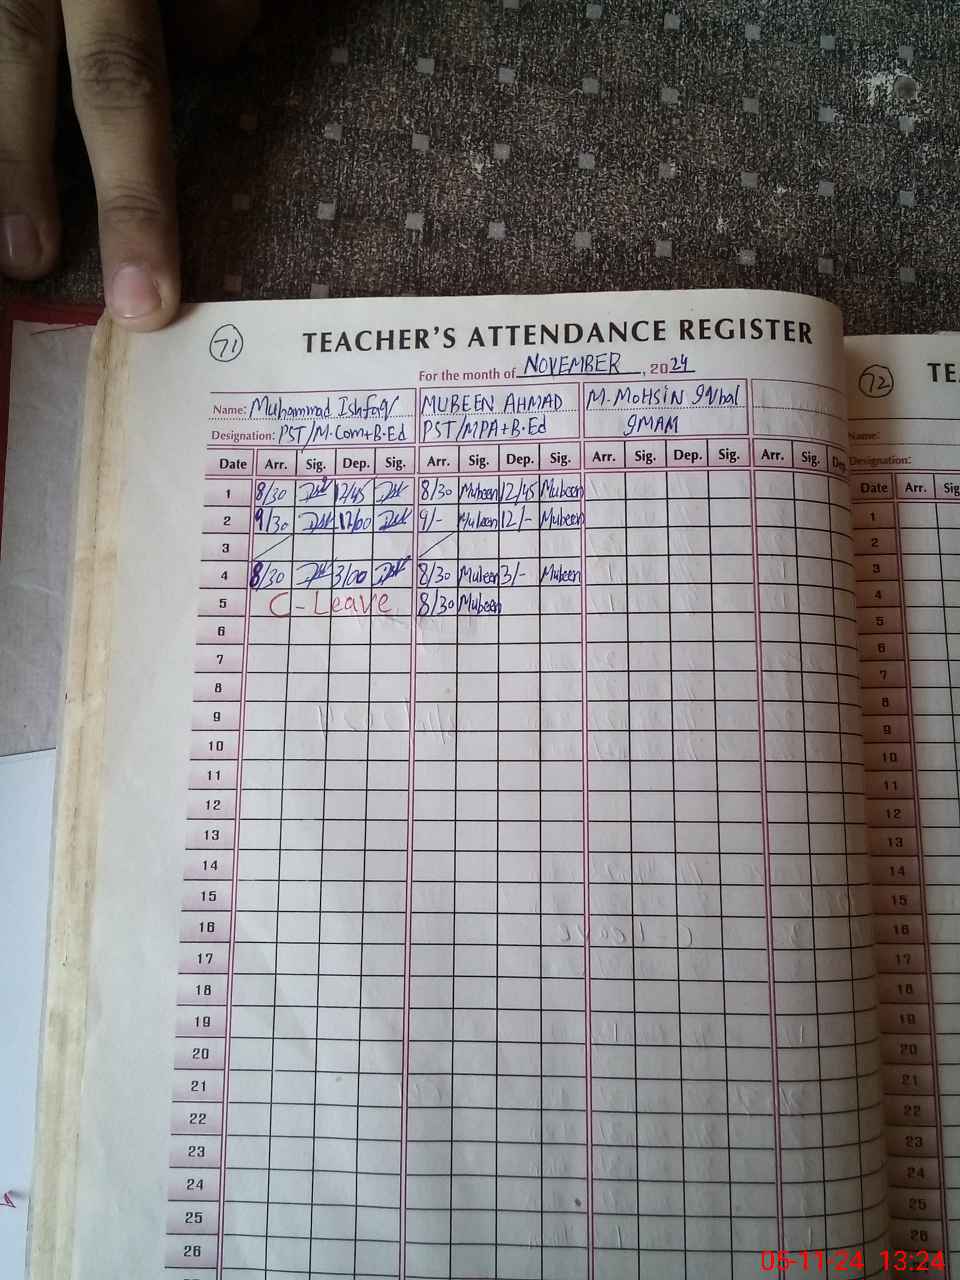 71 TEACHER'S ATTENDANCE REGISTER
For the month of NOVEMBER, 2024
Name: Muhammad Ishfaq MUBEEN AHMAD M. MOHSIN Iqbal
Designation: PST/M.Com+B.Ed PST/MPA+B.Ed IMAM
Date Arr. Sig. Dep. Sig. Arr. Sig. Dep. Sig. Arr. Sig. Dep. Sig. Arr. Sig. Dep.
1 8/30 12/45 8/30 Mubeen 12/45 Mubeen
2 9/30 12/00 9/- Mubeen 12/- Mubeen
3
4 8/30 3/00 8/30 Mubeen 3/- Mubeen
5 C-Leave 8/30 Mubeen
6
7
8
9
10
11
12
13
14
15
16
17
18
19
20
21
22
23
24
25
26
72 TE
Name:
Designation:
Date Arr. Sig
1
2
3
4
5
6
7
8
9
10
11
12
13
14
15
16
17
18
19
20
21
22
23
24
25
26
05-11-24 13:24